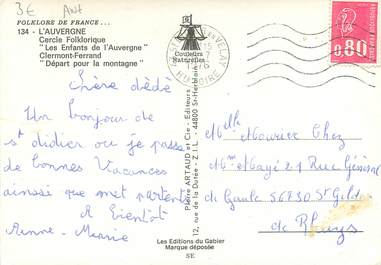 3€ Ant
FOLKLORE DE FRANCE...
134 - L'AUVERGNE
Cercle Folklorique
"Les Enfants de l'Auvergne"
Clermont-Ferrand
"Départ pour la montagne"
Couleurs
Naturelles
VELAY
HTE LOIRE
0,80
Chère dédé
Un bonjour de
st didier ou je passe
de bonnes Vacances
ainssi que met parterts
A Bientôt
Anne-Marie
Pierre ARTAUD et Cie - Editeurs
12, rue de la Durée - Z.I.L. - 44800 St-Herblain
Melle Mourier Chez
Mme Mayé 21 Rue Général
de Gaule 56730 St Gildas
de Rhuys
Les Editions du Gabier
Marque déposée
SE